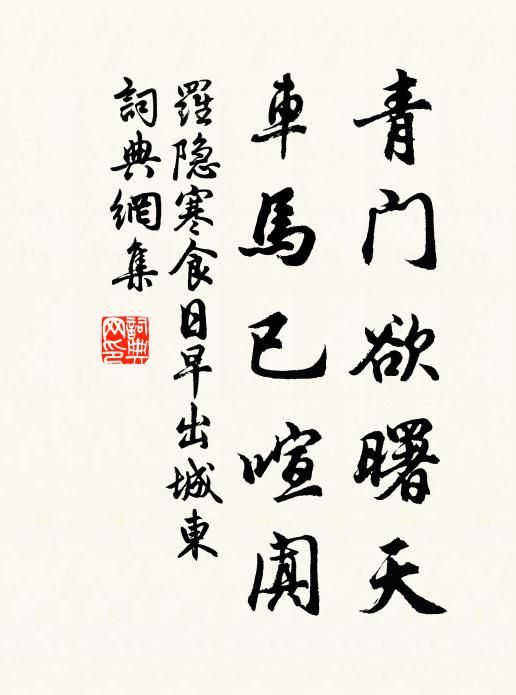 青门欲曙天
車馬已喧闐
羅隐寒食日早出城東
詞典網集
詞典网印